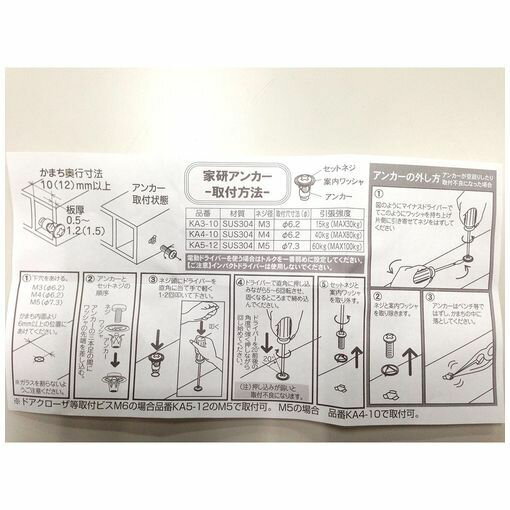 かまち奥行寸法
10(12)mm以上
板厚
0.5~
1.2(1.5)
アンカー
取付状態
家研アンカー
-取付方法-
セットネジ
案内ワッシャ
アンカー
品番 材質 ネジ径 取付穴寸法(φ) 引張強度
KA3-10 SUS304 M3 φ6.2 15kg(MAX30kg)
KA4-10 SUS304 M4 φ6.2 40kg(MAX80kg)
KA5-12 SUS304 M5 φ7.3 60kg(MAX100kg)
電動ドライバーを使う場合はトルクを一番弱めに設定してください。
【ご注意】インパクトドライバーは使用しないでください。
アンカーの外し方
アンカーが空廻りしたり
取付不良になった場合
①
図のようにマイナスドライバーで
てこのようにワッシャを持ち上げ
片側に引き寄せてネジをはずします。
②
ネジと案内ワッシャ
を取り除きます。
③
アンカーはペンチ等で
はずし、かまちの中に
落としてください。
①下穴をあける。
M3(φ6.2)
M4(φ6.2)
M5(φ7.3)
かまち内面より
6mm以上の位置に
あけてください。
※ガラスを割らないよ
うご注意ください。
②アンカーと
セットネジの
順序
アンカーの二本足の間に
ワッシャの先端を差し込む。
③ネジ頭にドライバーを
垂直に当て手で軽く
1・2回叩いて下さい。
叩く
④ドライバーで垂直に押し込
みながら5~6回転させ、
固くなるところまで締め込
んでください。
ドライバーを左前後の
角度で強く押しながら
締め付けてください。
(注)押し込みが弱いと
取付不良になります。
⑤セットネジと
案内ワッシャ
を取り外す。
※ドアクローザ等取付ビスM6の場合品番KA5-12のM5で取付可。M5の場合 品番KA4-10で取付可。